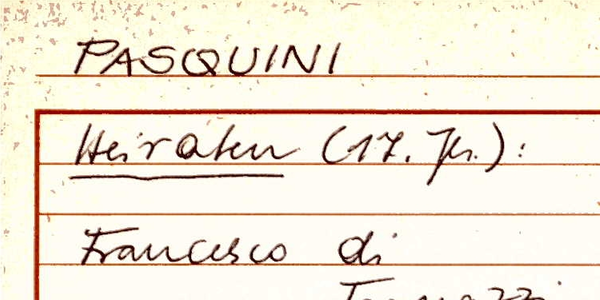 PASQUINI
Heiraten (17. Jh.):
Francesco di